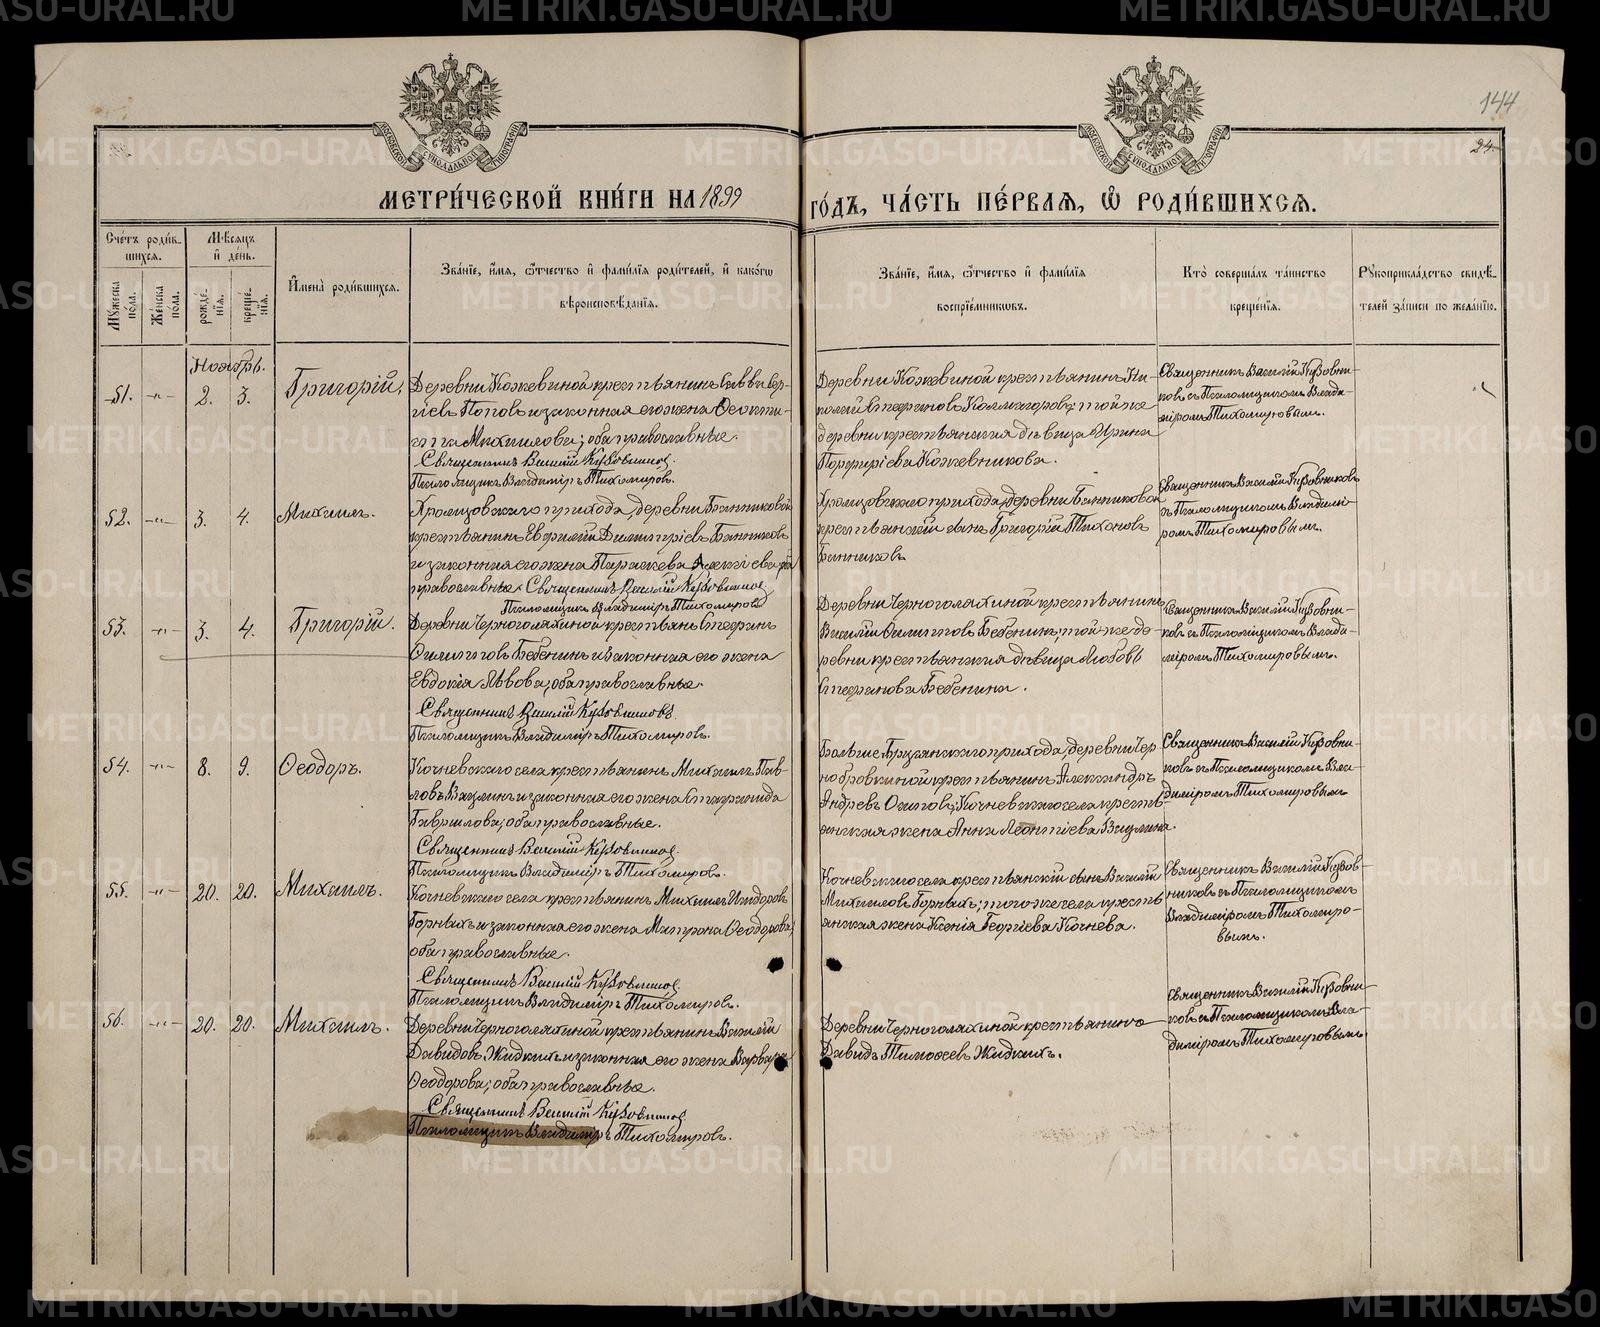 144
24.
МОСКОВСКОЙ СУНОДАЛЬНОЙ ТИПОГРАФІИ
МОСКОВСКОЙ СУНОДАЛЬНОЙ ТИПОГРАФІИ
МЕТРИ́ЧЕСКОЙ КНИ́ГИ НА 1899
ГО́ДЪ, ЧА́СТЬ ПЕ́РВАѦ, Ѽ РОДИ́ВШИХСѦ.
Сче́тъ роди́в-
шихсѧ.
Мꙋ́жеска
по́ла.
Же́нска
по́ла.
Мѣ́сѧцъ
и҆ де́нь.
рожде́-
нїѧ.
креще́-
нїѧ.
И҆мена̀ роди́вшихсѧ.
Зва́нїе, и҆́мѧ, ѻ҆́тчество и҆ фами́лїѧ роди́телей, и҆ како́гѡ
вѣроисповѣ́данїѧ.
Зва́нїе, и҆́мѧ, ѻ҆́тчество и҆ фами́лїѧ
воспрїе́мникѡвъ.
Кто̀ соверша́лъ та́инство
креще́нїѧ.
Рꙋкоприкла́дство свидѣ́-
телей за́писи по жела́нїю.
Ноябрь.
51. -"- 2. 3. Григорій.
Деревни Кожевиной крестьянинъ Савва Сер-
гіевъ Поповъ и законная его жена Ѳеокти-
ста Михаилова; оба православные.
Священникъ Василій Кузовниковъ.
Псаломщикъ Владиміръ Тихомировъ.
Деревни Кожевиной крестьянинъ Ни-
колай Стефановъ Колмогоровъ; той же
деревни крестьянская дѣвица Ирина
Порфиріева Кожевникова.
Священникъ Василій Кузовни-
ковъ съ Псаломщикомъ Влади-
міромъ Тихомировымъ.
52. -"- 3. 4. Михаилъ.
Хромцовскаго прихода, деревни Банниковой
крестьянинъ Евфимій Димитріевъ Банниковъ
и законная его жена Параскева
православные. Священникъ Василій Кузовниковъ
Псаломщикъ Владиміръ Тихомировъ
Хромцовскаго прихода, деревни Банниковой
крестьянскій сынъ Григорій Тихоновъ
Банниковъ
Священникъ Василій Кузовниковъ
съ Псаломщикомъ Владимі-
ромъ Тихомировымъ.
53. -"- 3. 4. Григорій.
Деревни Черноголяхиной крестьян Стефанъ
Филипповъ Бебенинъ и законная его жена
Евдокія Львова; оба православные.
Священникъ Василій Кузовниковъ.
Псаломщикъ Владиміръ Тихомировъ.
Деревни Черноголяхиной крестьянинъ
Василій Филипповъ Бебенинъ; той же де-
ревни крестьянская дѣвица Любовь
Стефанова Бебенина.
Священникъ Василій Кузовни-
ковъ съ Псаломщикомъ Влади-
міромъ Тихомировымъ.
54. -"- 8. 9. Ѳеодоръ.
Кочневскаго села крестьянинъ Михаилъ Пав-
ловъ Вяцлинъ и законная его жена Стефанида
Гаврилова; оба православные.
Священникъ Василій Кузовниковъ.
Псаломщикъ Владиміръ Тихомировъ.
Больше-Брусянскаго прихода, деревни Чер-
нобровкиной крестьянинъ Александръ
Андреевъ Осиповъ; Кочневскаго села кресть-
янская жена Анна Леонтіева
Священникъ Василій Кузовни-
ковъ съ Псаломщикомъ Вла-
диміромъ Тихомировымъ
55. -"- 20. 20. Михаилъ.
Кочневскаго села крестьянинъ Михаилъ Исидоровъ
Горныхъ и законная его жена Матрона Ѳеодорова;
оба православные.
Священникъ Василій Кузовниковъ
Псаломщикъ Владиміръ Тихомировъ.
Кочневскаго села крестьянскій сынъ Василій
Михаиловъ Горныхъ; того же села кресть
янская жена Ксенія Георгіева Кочнева.
Священникъ Василій Кузов-
никовъ съ Псаломщикомъ
Владиміромъ Тихомиро-
вымъ.
56. -"- 20. 20. Михаилъ.
Деревни Черноголяхиной крестьянинъ Василій
Давидовъ Жидкихъ и законная его жена Варвара
Ѳеодорова; оба православные.
Священникъ Василій Кузовниковъ
Псаломщикъ Владиміръ Тихомировъ.
Деревни Черноголяхиной крестьянинъ
Давидъ Тимоѳеевъ Жидкихъ.
Священникъ Василій Кузовни-
ковъ съ Псаломщикомъ Вла-
диміромъ Тихомировымъ
METRIKI.GASO-URAL.RU